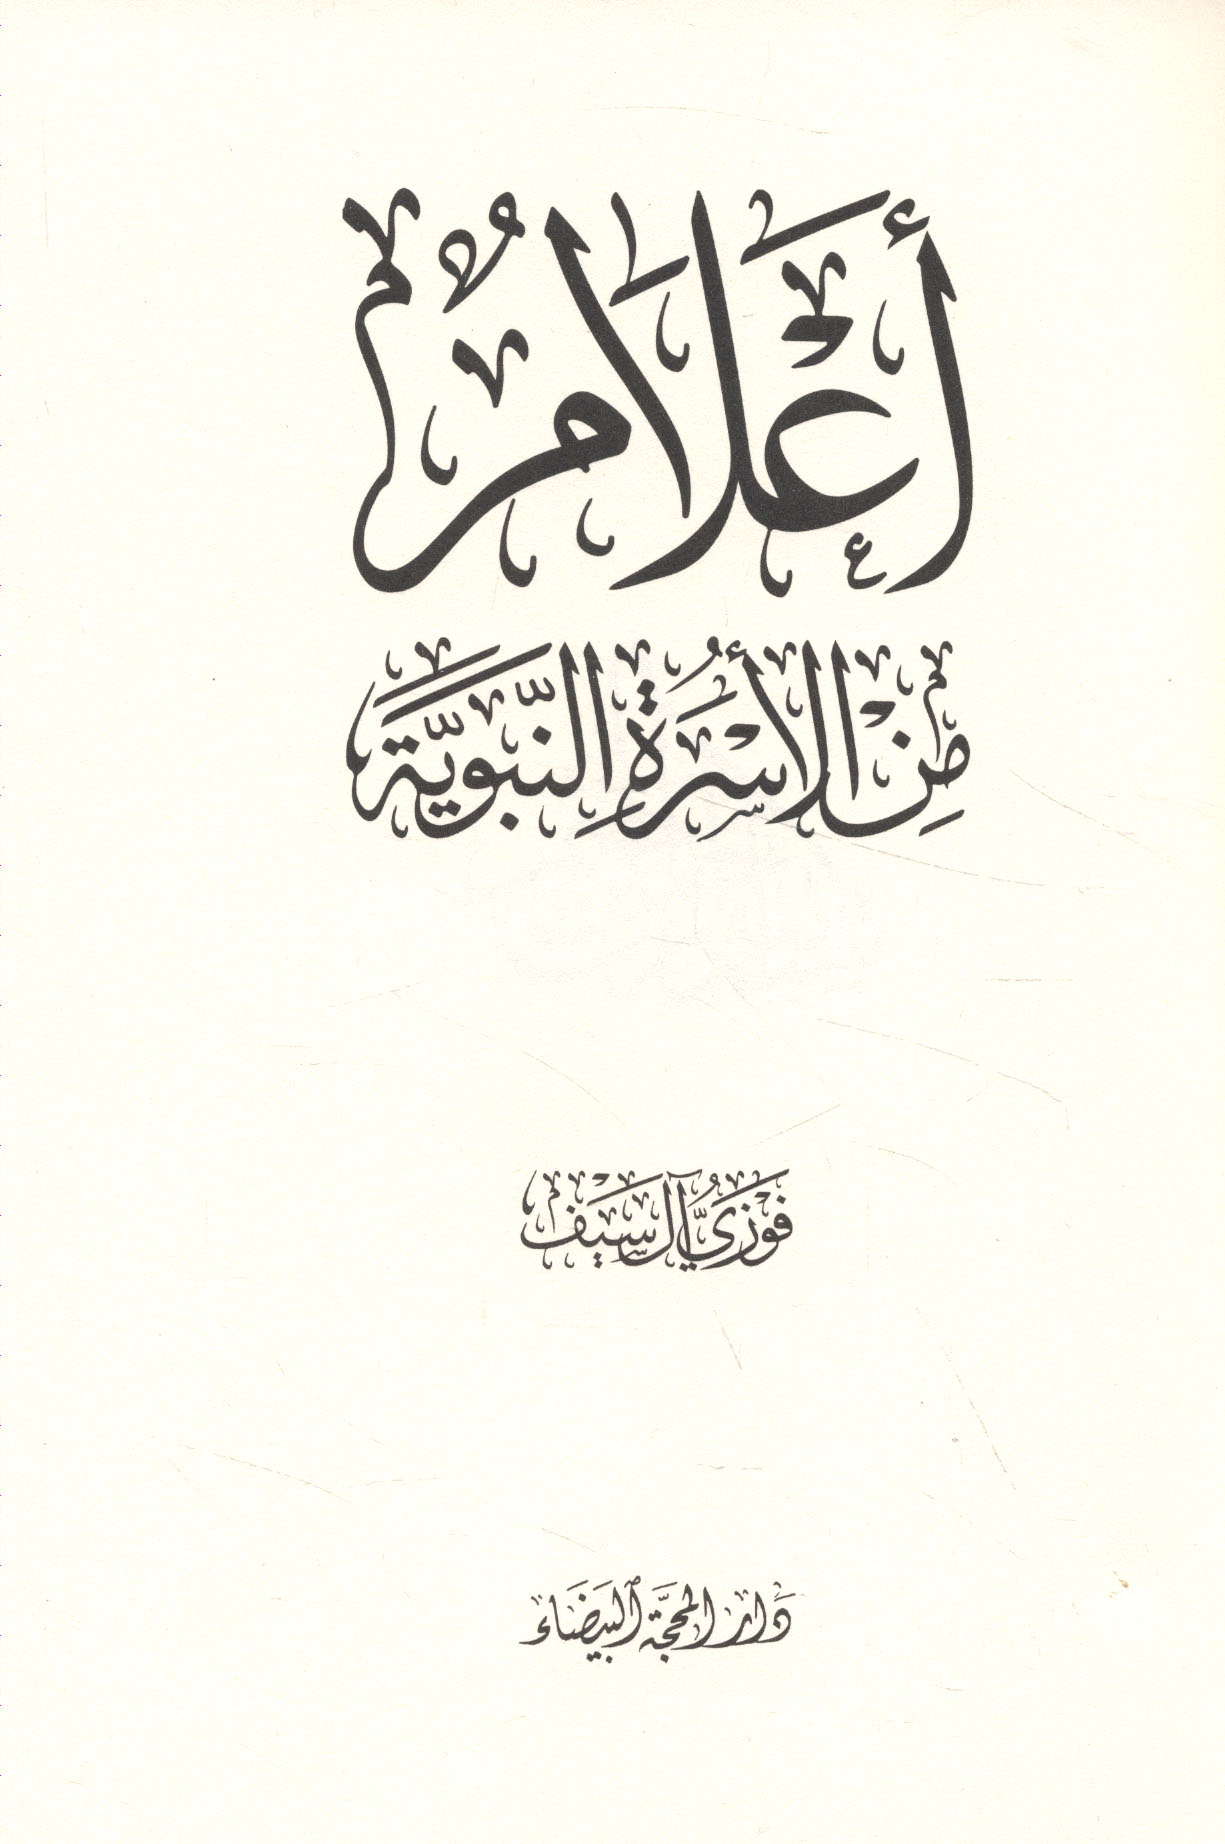 أَعْلَامٌ
مِنَ الأُسْرَةِ النَّبَوِيَّةِ
فَوْزِيُّ آل سَيْف
دَار المحجَّة البَيضَاء